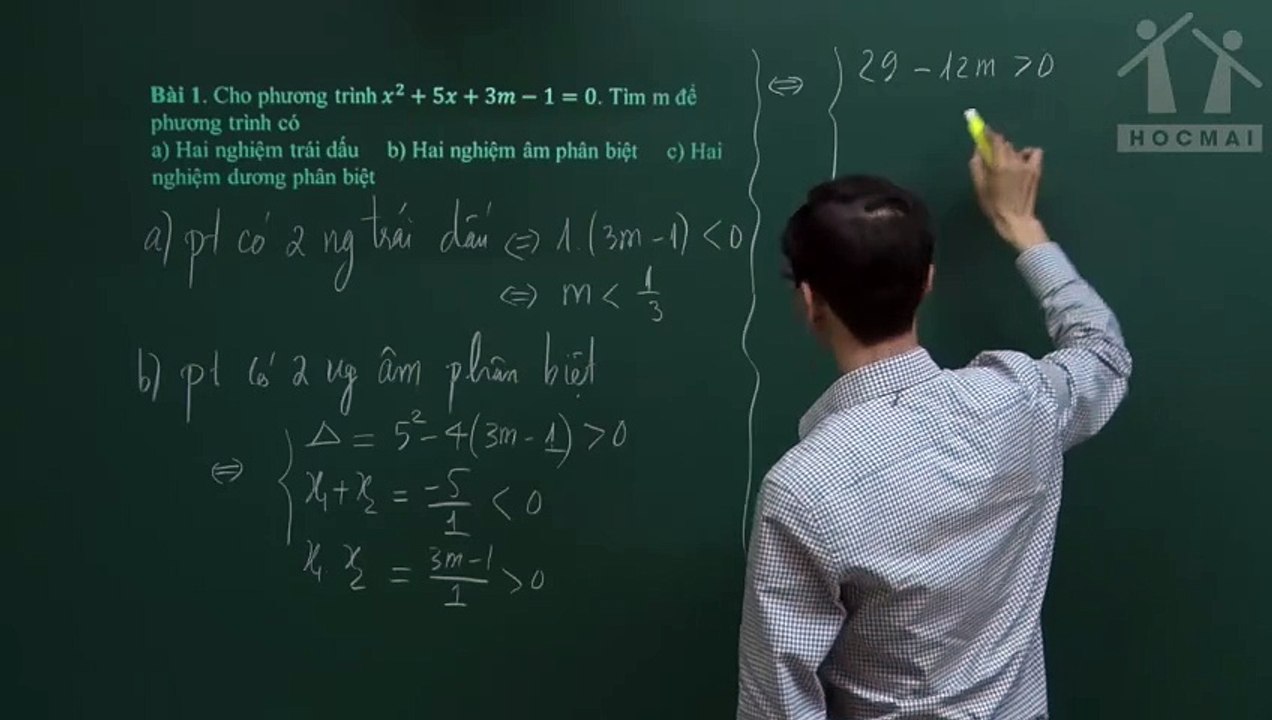 Bài 1. Cho phương trình x² + 5x + 3m − 1 = 0. Tìm m để
phương trình có
a) Hai nghiệm trái dấu b) Hai nghiệm âm phân biệt c) Hai
nghiệm dương phân biệt
a) pt có 2 ng trái dấu ⇔ 1.(3m − 1) < 0
⇔ m < 1/3
b) pt có 2 ng âm phân biệt
⇔ { Δ = 5² − 4(3m − 1) > 0
x₁ + x₂ = −5/1 < 0
x₁ x₂ = 3m−1/1 > 0
⇔ { 29 − 12m > 0
HOCMAI